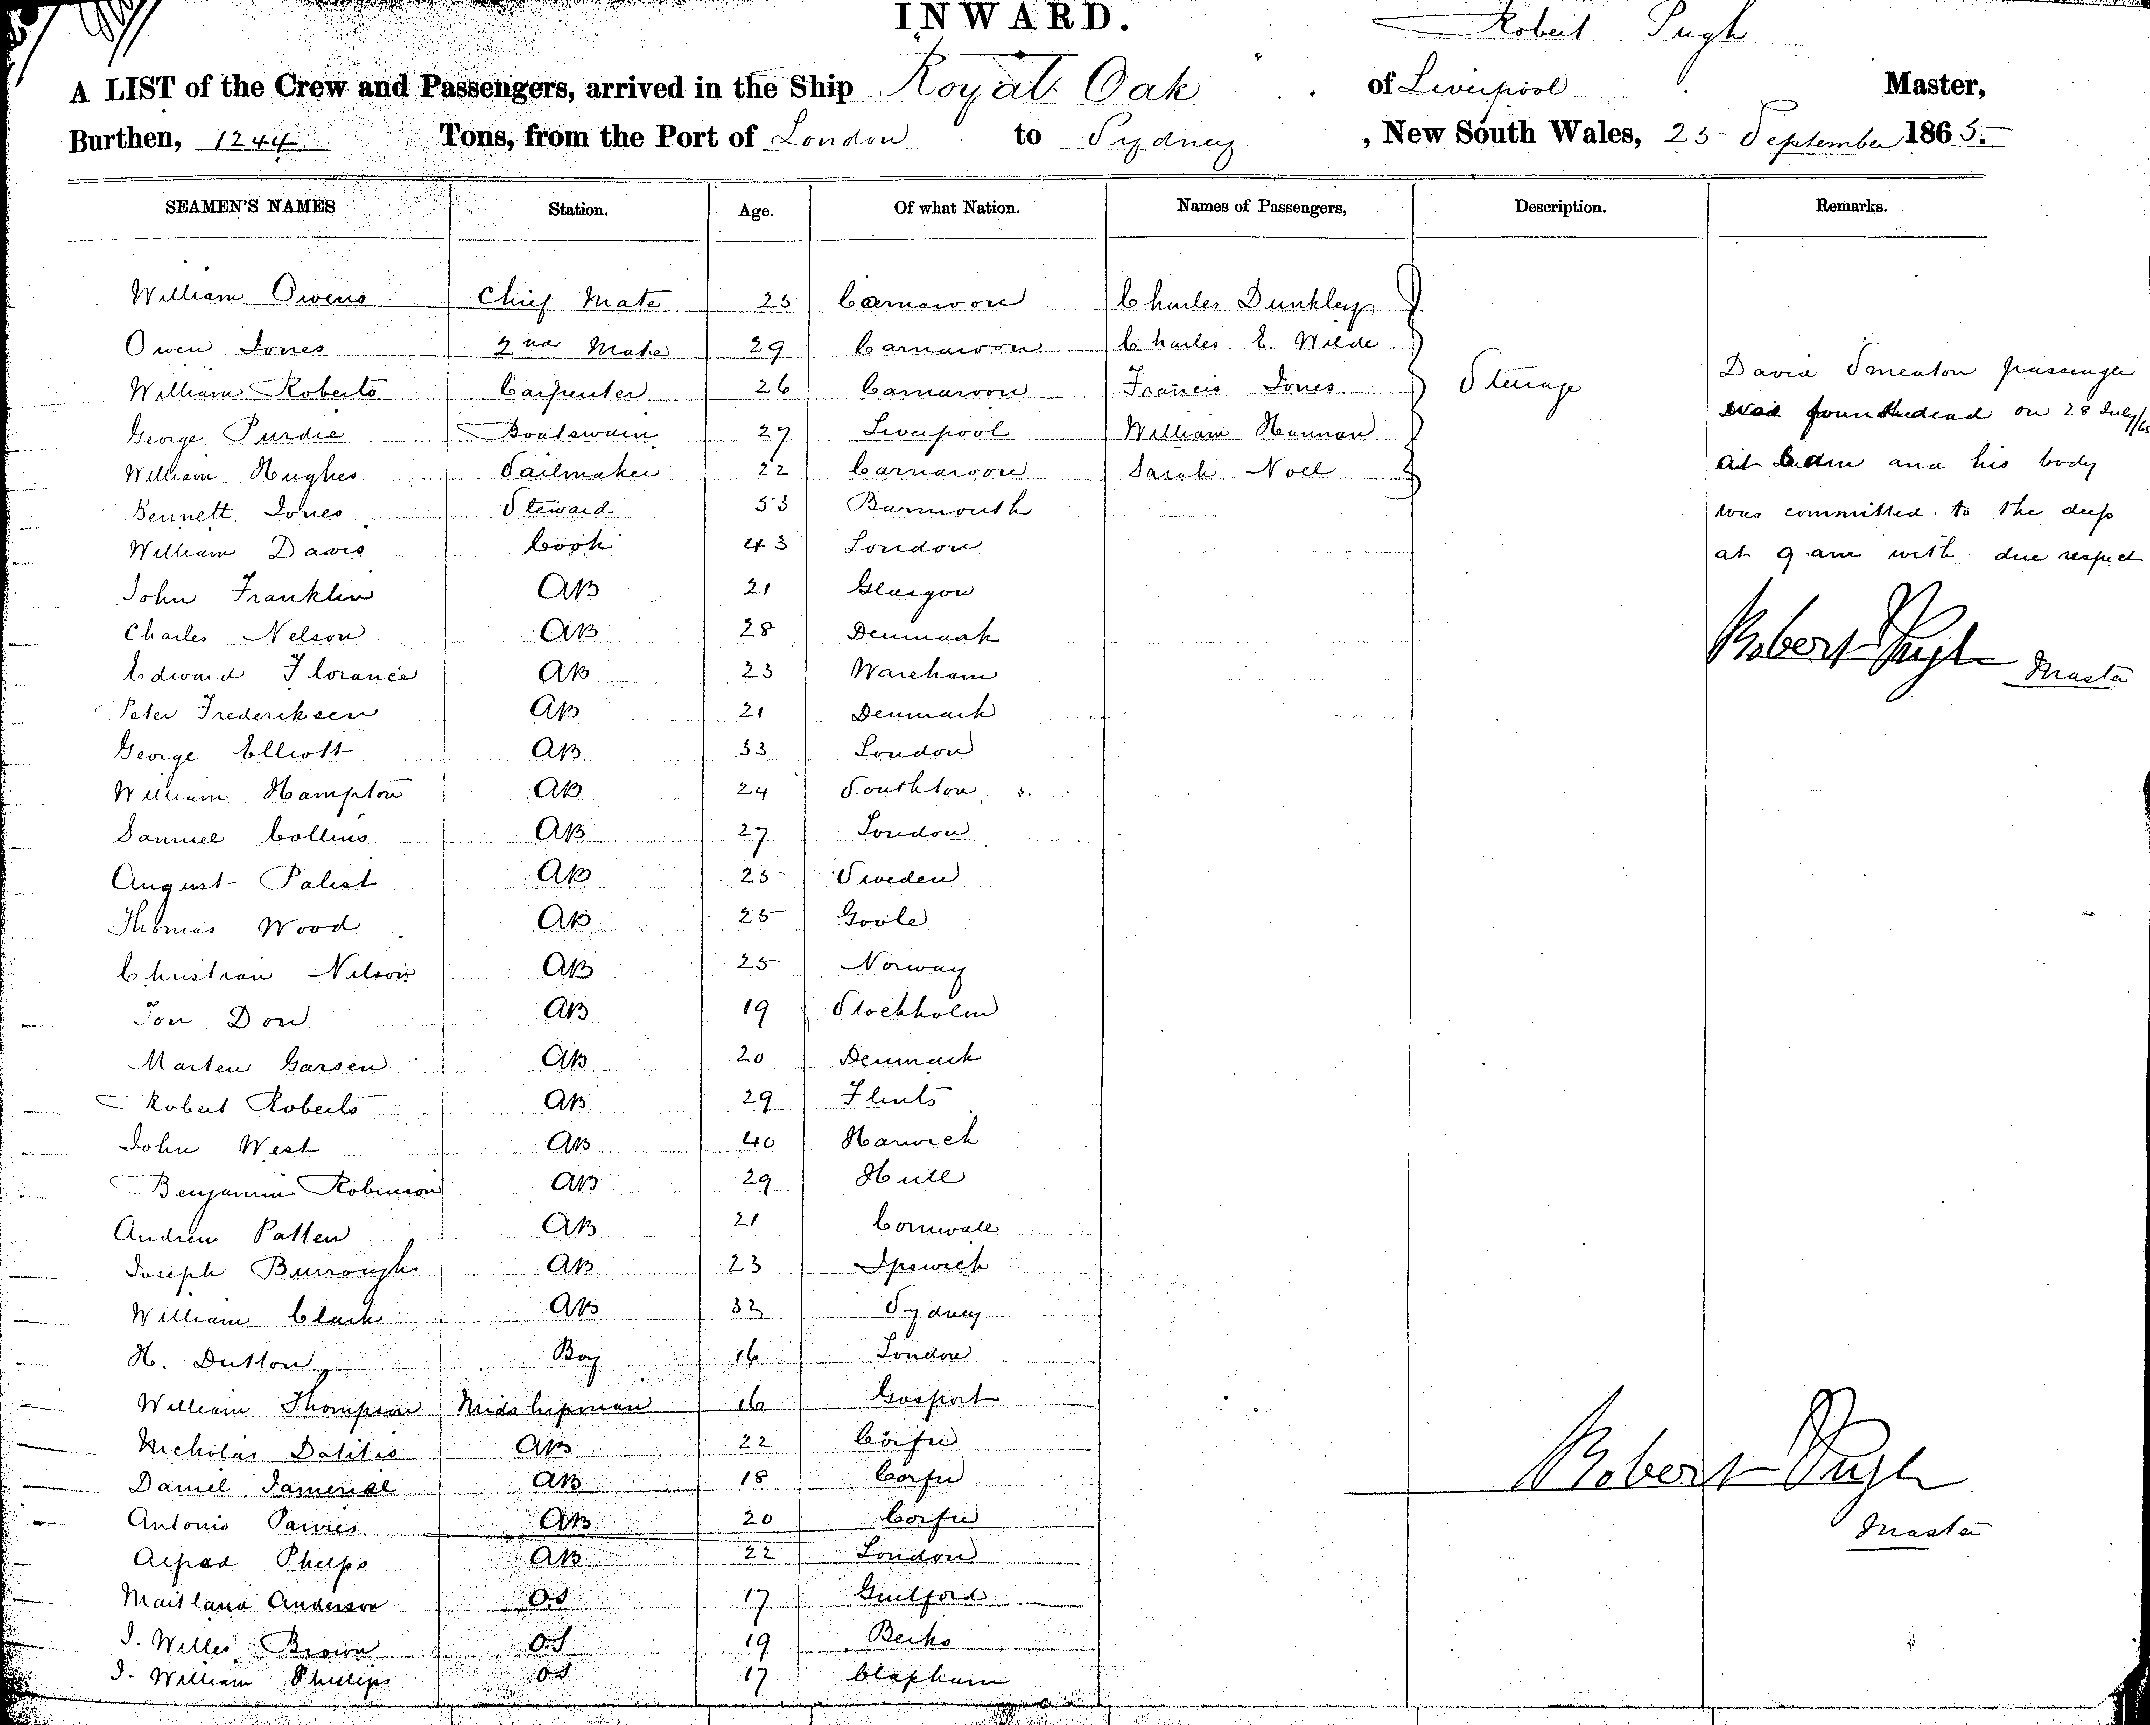 INWARD.
Robert Pugh
A LIST of the Crew and Passengers, arrived in the Ship Royal Oak of Liverpool Master,
Burthen, 1244 Tons, from the Port of London to Sydney, New South Wales, 25 September 1865.
SEAMEN'S NAMES Station. Age. Of what Nation. Names of Passengers, Description. Remarks.
William Owens Chief Mate 25 Carnarvon Charles Dunkley
Owen Jones 2nd Mate 29 Carnarvon Charles E. Wilde
William Roberts Carpenter 26 Carnarvon Francis Jones Steerage David Smeaton passenger
George Purdie Boatswain 27 Liverpool William Hannan was found dead on 28 July/65
William Hughes Sailmaker 22 Carnarvon Sarah Noll at 6 am and his body
Bennett Jones Steward 53 Barmouth was committed to the deep
William Davis Cook 43 London at 9 am with due respect
John Franklin AB 21 Glasgow
Charles Nelson AB 28 Denmark Robert Pugh
Edward Florance AB 23 Wareham Master
Peter Frederiksen AB 21 Denmark
George Elliott AB 33 London
William Hampton AB 24 Southton
Samuel Collins AB 27 London
August Palist AB 25 Sweden
Thomas Wood AB 25 Goole
Christian Nelson AB 25 Norway
Jon Don AB 19 Stockholm
Marten Garsen AB 20 Denmark
Robert Roberts AB 29 Flints
John West AB 40 Harwich
Benjamin Robinson AB 29 Hull
Andrew Patten AB 21 Cornwall
Joseph Burrough AB 23 Ipswich
William Clark AB 32 Sydney
H. Dutton Boy 16 London
William Thompson Midshipman 16 Gosport
Nicholas Dalitis AB 22 Corfu
Daniel AB 18 Corfu Robert Pugh
Antonio AB 20 Corfu Master
Alfred Phelps AB 22 London
Maitland Anderson OS 17 Guilford
J. Willes Brown OS 19 Berks
J. William Phillips OS 17 Clapham